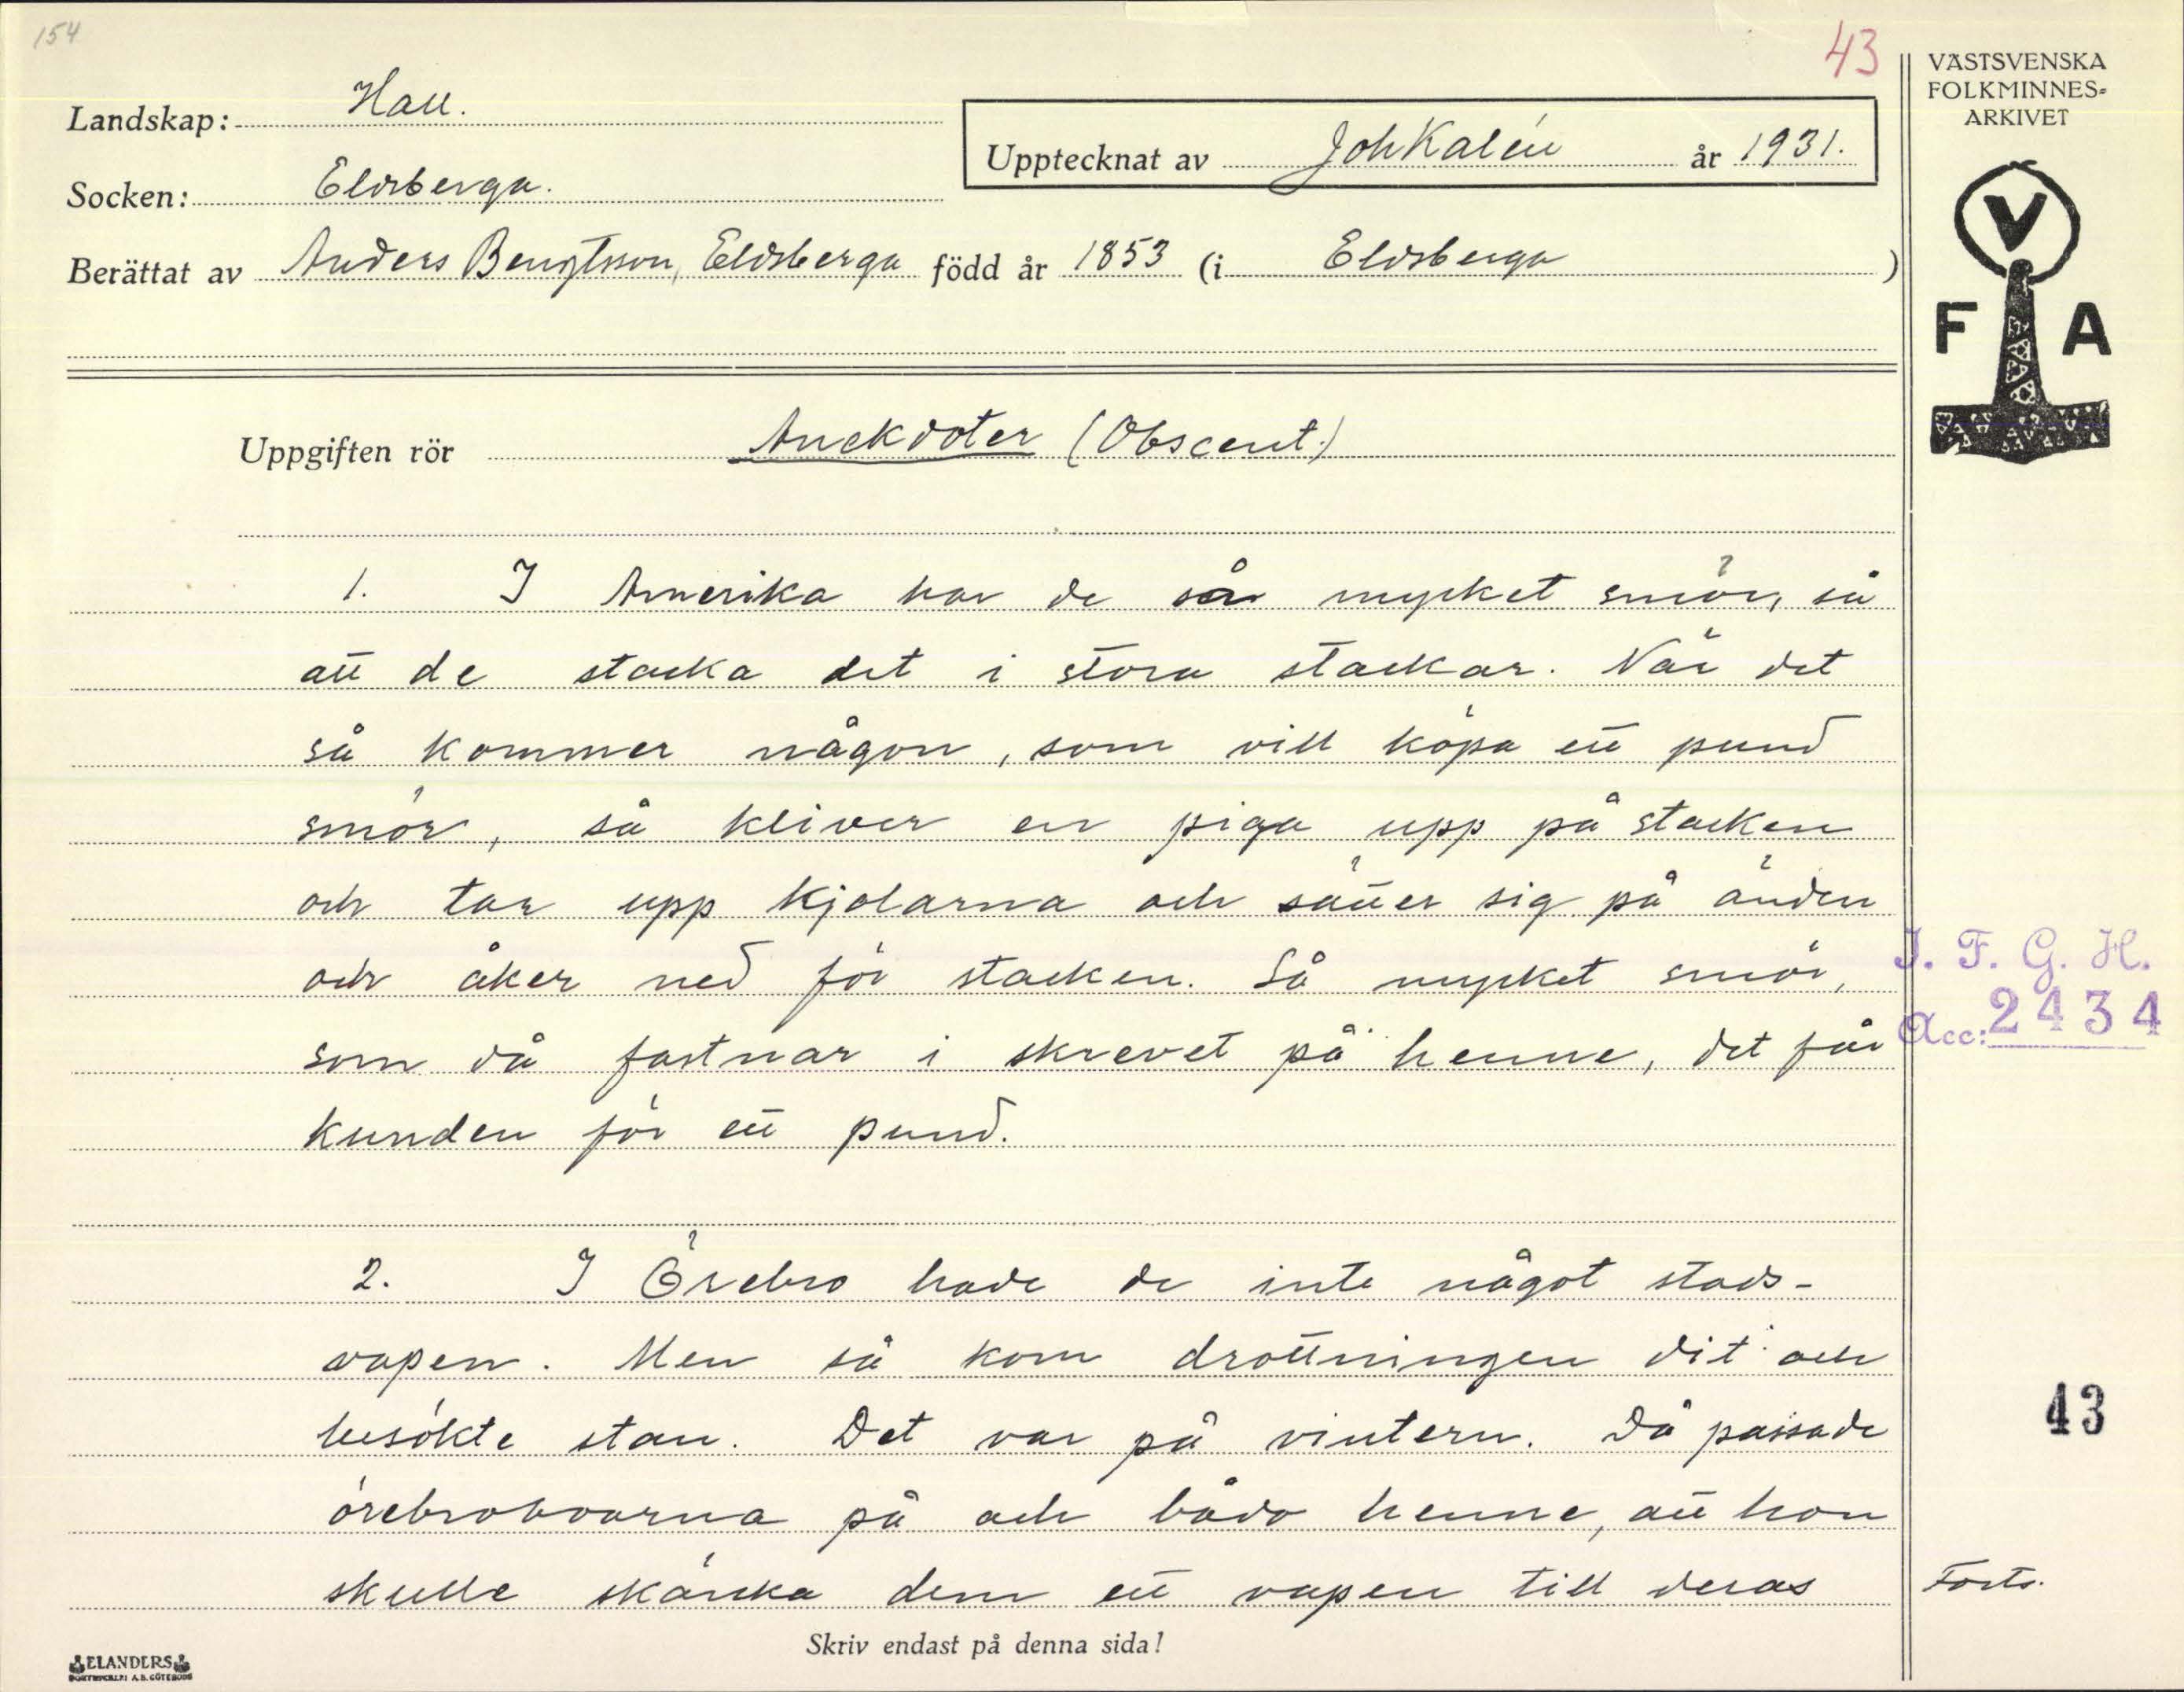 154
43
VÄSTSVENSKA
FOLKMINNES-
ARKIVET
Landskap: Hall.
Upptecknat av Joh Kalén år 1931.
Socken: Eldsberga.
Berättat av Anders Bengtsson, Eldsberga född år 1853 (i Eldsberga )
V
F A
Uppgiften rör Anekdoter (Obscent.)
1. I Amerika har de så mycket smör, så
att de stacka det i stora stackar. När det
så kommer någon, som vill köpa ett pund
smör, så kliver en piga upp på stacken
och tar upp kjolarna och sätter sig på änden
och åker ned för stacken. Så mycket smör,
som då fastnar i skrevet på henne, det får
kunden för ett pund.
I. F. G. H.
Acc: 2434
2. I Örebro hade de inte något stads-
vapen. Men så kom drottningen dit och
besökte stan. Det var på vintern. Då passade
örebroborna på och bådo henne, att hon
skulle skänka dem ett vapen till deras
43
Forts.
Skriv endast på denna sida!
ELANDERS
BOKTRYCKERI A.B. GÖTEBORG